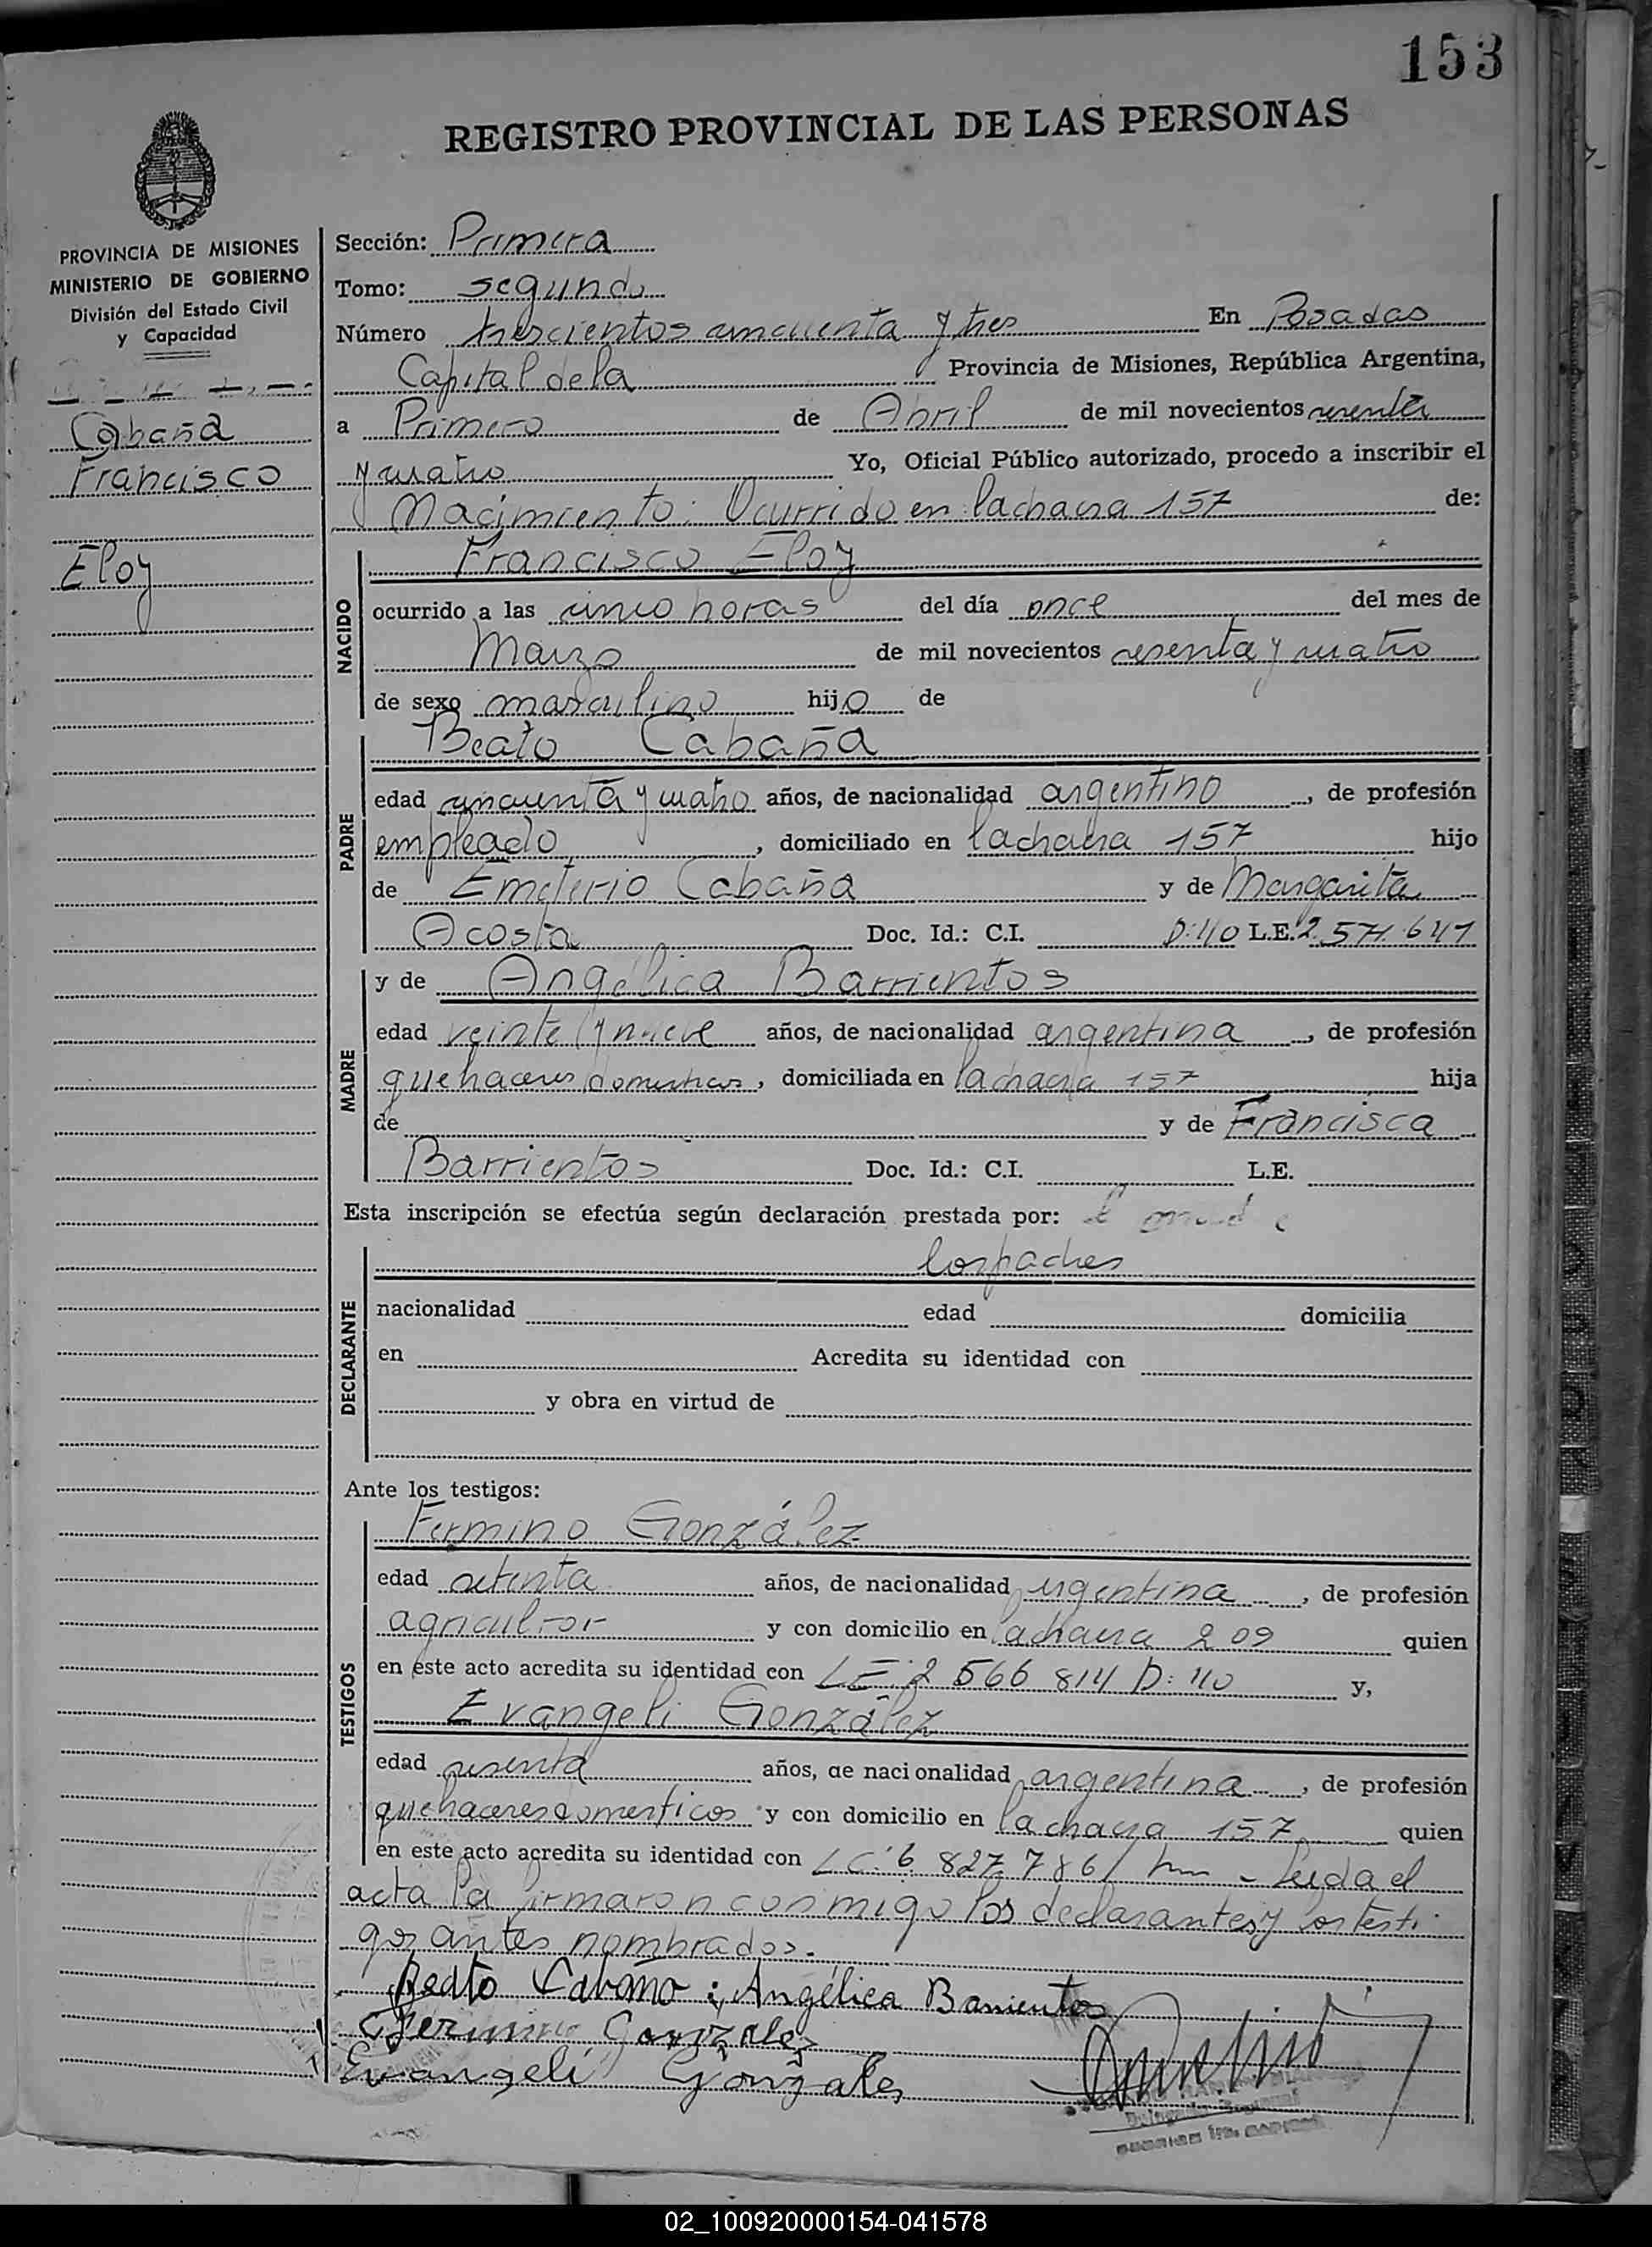 153
REGISTRO PROVINCIAL DE LAS PERSONAS
PROVINCIA DE MISIONES
MINISTERIO DE GOBIERNO
División del Estado Civil
y Capacidad
Cabaña
Francisco
Eloy
Sección: Primera
Tomo: segundo
Número trescientos cincuenta y tres En Posadas
Capital de la Provincia de Misiones, República Argentina,
a Primero de Abril de mil novecientos sesenta
y cuatro Yo, Oficial Público autorizado, procedo a inscribir el
Nacimiento: Ocurrido en la chacra 157 de:
NACIDO
Francisco Eloy
ocurrido a las cinco horas del día once del mes de
Marzo de mil novecientos sesenta y cuatro
de sexo masculino hijo de
PADRE
Beato Cabaña
edad cincuenta y cuatro años, de nacionalidad argentino, de profesión
empleado, domiciliado en la chacra 157 hijo
de Emeterio Cabaña y de Margarita
Acosta Doc. Id.: C.I. D:40 L.E. 2.571.641
MADRE
y de Angélica Barrientos
edad veinte y nueve años, de nacionalidad argentina, de profesión
quehaceres domesticos, domiciliada en la chacra 157 hija
de y de Francisca
Barrientos Doc. Id.: C.I. L.E.
Esta inscripción se efectúa según declaración prestada por:
DECLARANTE
los padres
nacionalidad edad domicilia
en Acredita su identidad con
y obra en virtud de
Ante los testigos:
TESTIGOS
Fermino González
edad setenta años, de nacionalidad argentina, de profesión
agricultor y con domicilio en la chacra 209 quien
en este acto acredita su identidad con LE: 2 566 814 D: 40 y,
Evangeli González
edad sesenta años, de nacionalidad argentina, de profesión
quehaceres domesticos y con domicilio en la chacra 157 quien
en este acto acredita su identidad con LC: 6 827.786 Leida el
acta la firmaron conmigo los declarantes y los testi
gos antes nombrados.
Beato Cabaña; Angélica Barrientos
Fermino Gonzalez
Evangeli Gonzales
02_100920000154-041578